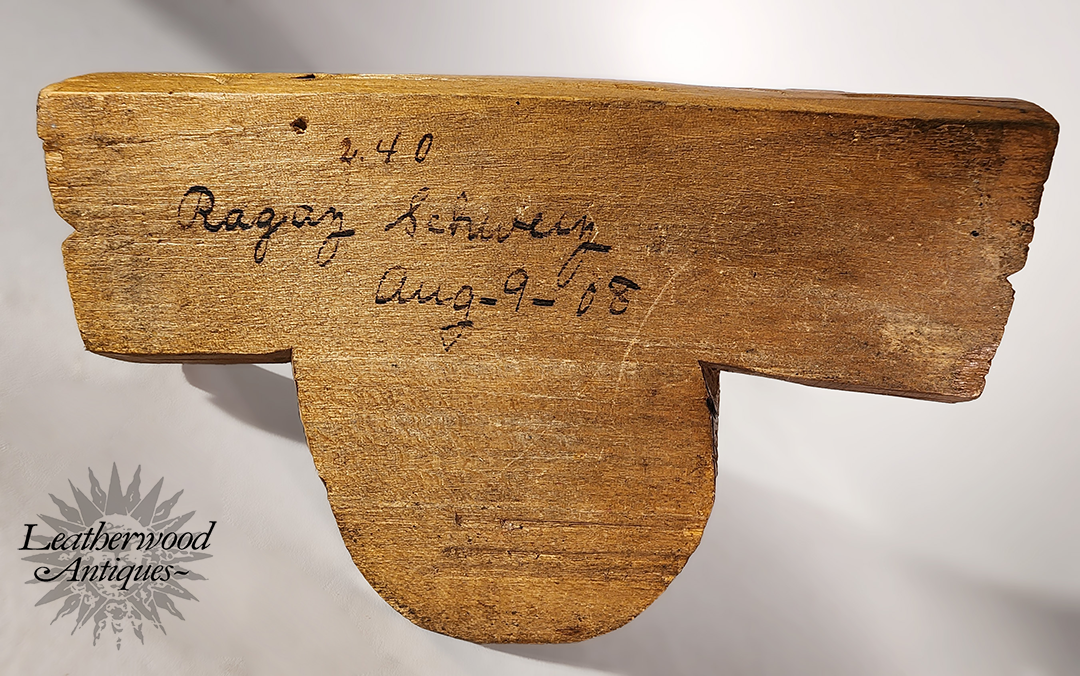 2.40
Ragaz Schweiz
Aug-9-08
Leatherwood
Antiques~